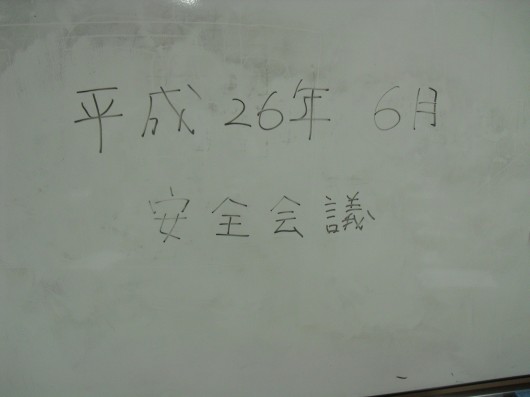 平成 26年 6月
安全会議